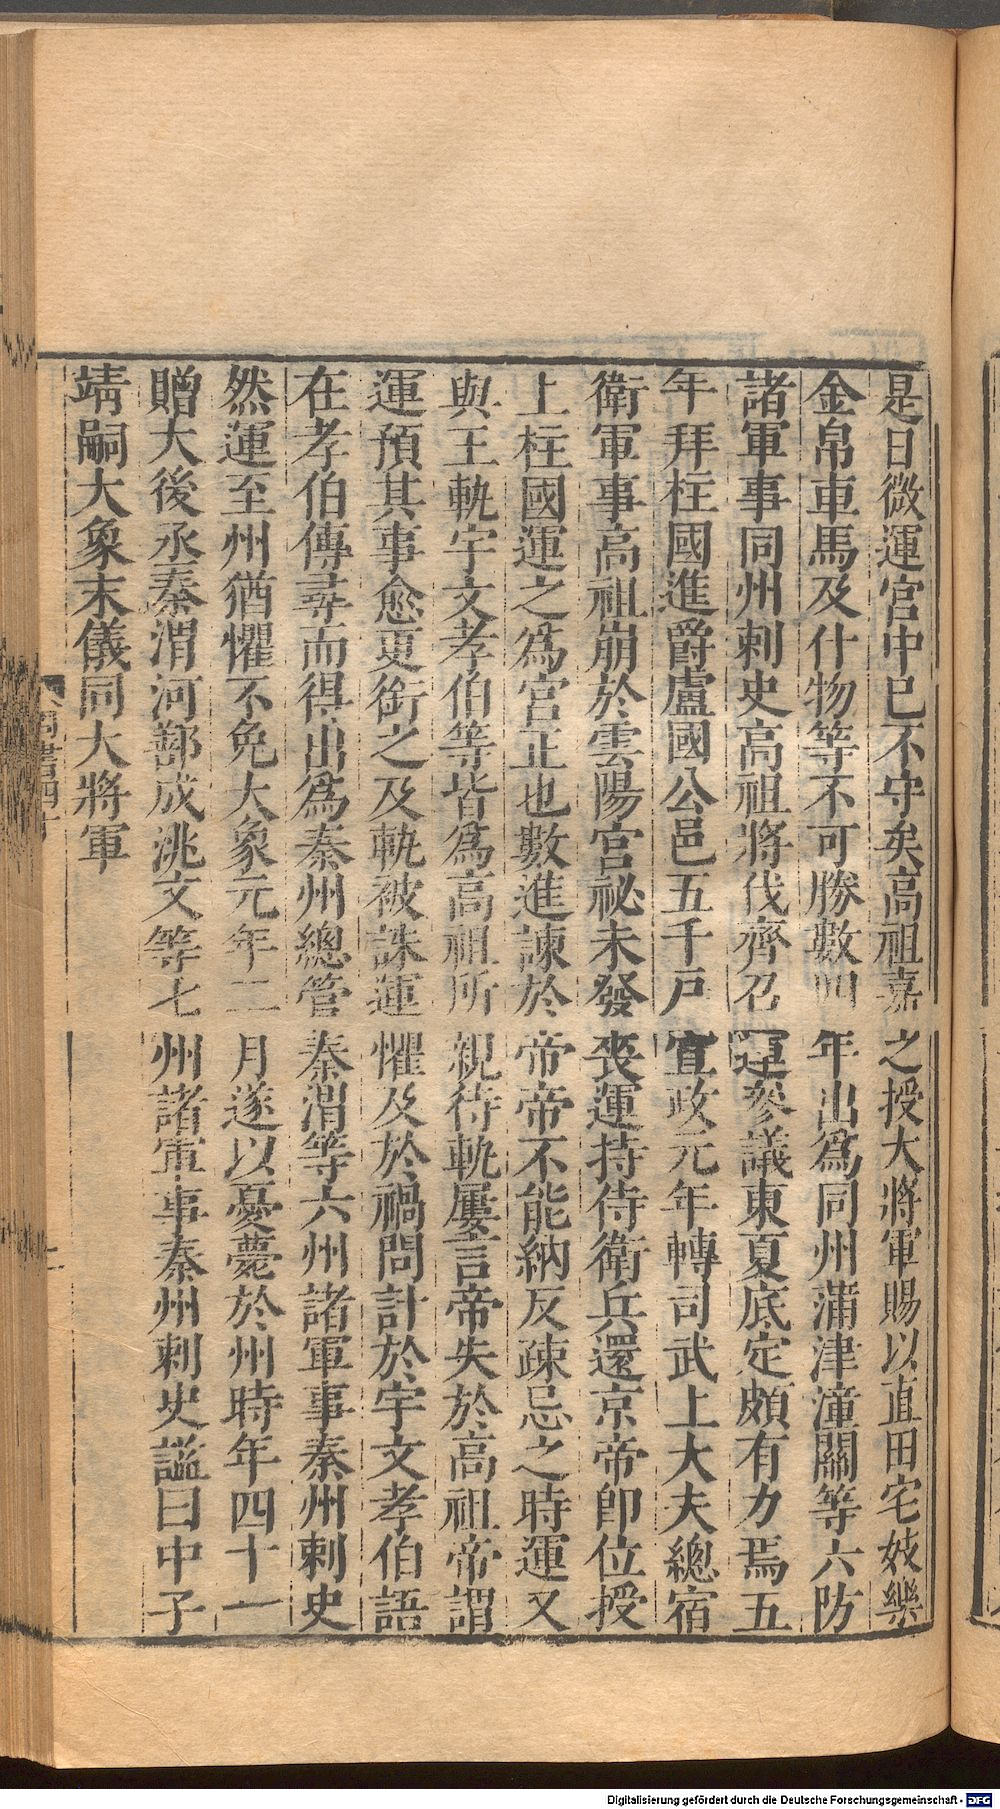 是日微運宮中已不守矣高祖嘉之授大將軍賜以直田宅妓樂
金帛車馬及什物等不可勝數四年出爲同州蒲津潼關等六防
諸軍事同州刺史高祖將伐齊召運參議東夏底定頗有力焉五
年拜柱國進爵盧國公邑五千戸宣政元年轉司武上大夫總宿
衛軍事高祖崩於雲陽宮祕未發喪運持侍衛兵還京帝卽位授
上柱國運之爲宮正也數進諫於帝帝不能納反疎忌之時運又
與王軌宇文孝伯等皆爲高祖所親待軌屢言帝失於高祖帝謂
運預其事愈更銜之及軌被誅運懼及於禍問計於宇文孝伯語
在孝伯傳尋而得出爲秦州總管秦渭等六州諸軍事秦州刺史
然運至州猶懼不免大象元年二月遂以憂薨於州時年四十一
贈大後丞秦渭河鄯成洮文等七州諸軍事秦州刺史謚曰中子
靖嗣大象末儀同大將軍
Digitalisierung gefördert durch die Deutsche Forschungsgemeinschaft - DFG